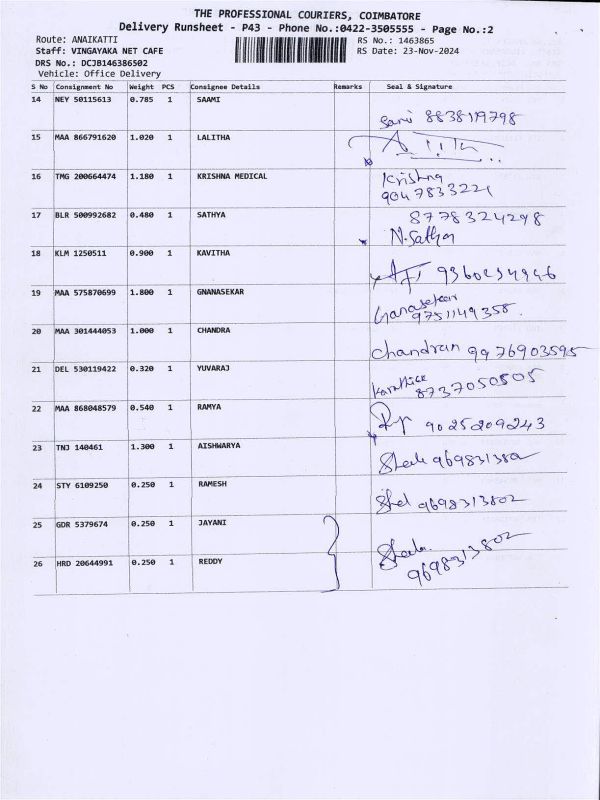 THE PROFESSIONAL COURIERS, COIMBATORE
Delivery Runsheet - P43 - Phone No.:0422-3505555 - Page No.:2
Route: ANAIKATTI RS No.: 1463865
Staff: VINGAYAKA NET CAFE RS Date: 23-Nov-2024
DRS No.: DCJB146386502
Vehicle: Office Delivery
S No Consignment No Weight PCS Consignee Details Remarks Seal & Signature
14 NEY 50115613 0.785 1 SAAMI
Sami 8838119798
15 MAA 866791620 1.020 1 LALITHA
16 TMG 200664474 1.180 1 KRISHNA MEDICAL Krishna
9047833221
17 BLR 500992682 0.480 1 SATHYA 8778324298
N.Sathya
18 KLM 1250511 0.900 1 KAVITHA
9360234946
19 MAA 575870699 1.800 1 GNANASEKAR Ganasekar
9751149358.
20 MAA 301444053 1.000 1 CHANDRA
Chandran 9976903595
21 DEL 530119422 0.320 1 YUVARAJ Karthick
8737050505
22 MAA 868048579 0.540 1 RAMYA
9025209243
23 TNJ 140461 1.300 1 AISHWARYA
9698313802
24 STY 6109250 0.250 1 RAMESH
9698313802
25 GDR 5379674 0.250 1 JAYANI
Sheela
26 HRD 20644991 0.250 1 REDDY 9698313802